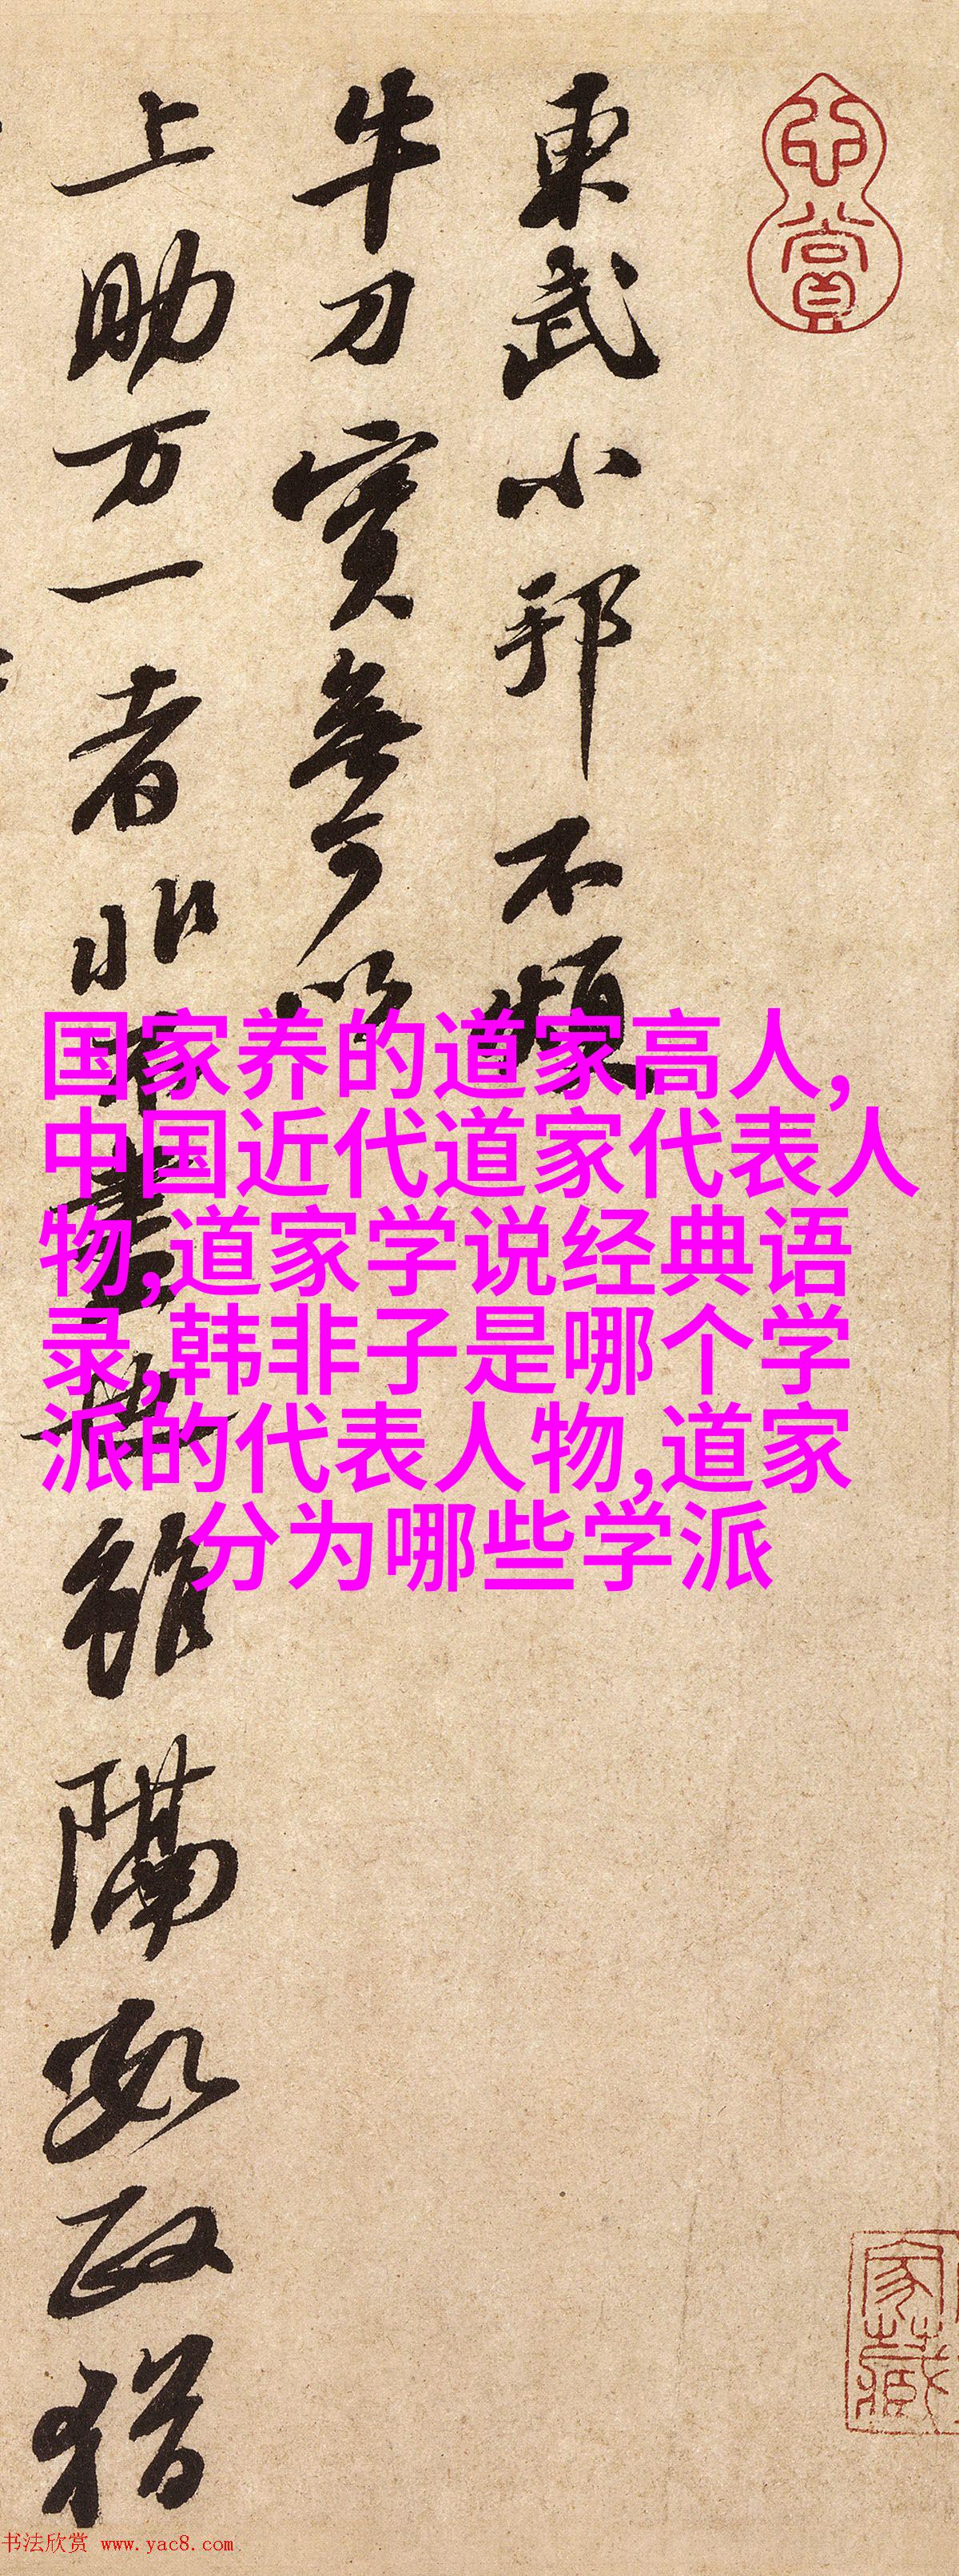 心賞
東武小邦不煩
牛刀實無可以
上助万一者非不盡也雖隔數政猶
家藏
国家养的道家高人,
中国近代道家代表人
物,道家学说经典语
录,韩非子是哪个学
派的代表人物,道家
分为哪些学派
书法欣赏 www.yac8.com